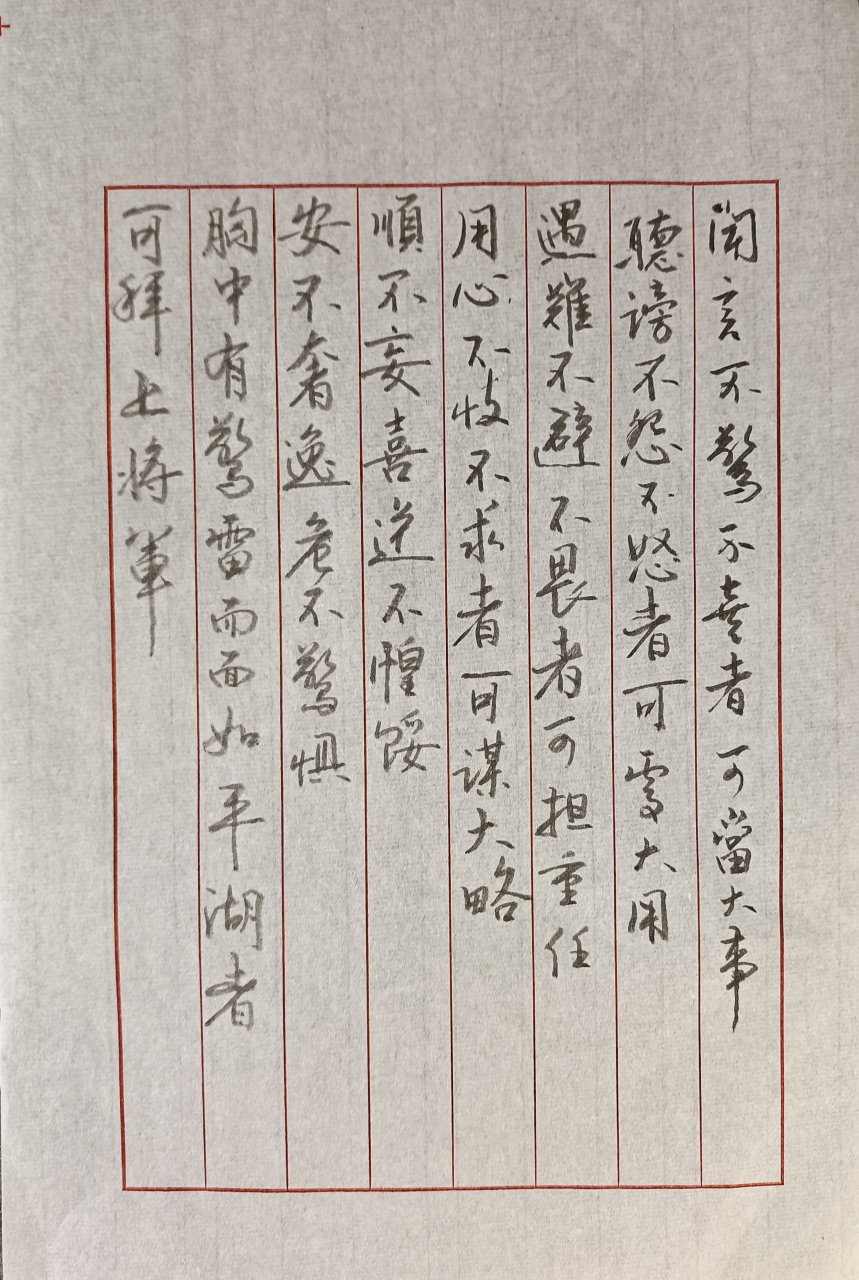 聞言不驚不喜者可當大事
聽謗不怨不怒者可處大用
遇難不避不畏者可担重任
用心不忮不求者可謀大略
順不妄喜逆不惶餒
安不奢逸危不驚惧
胸中有驚雷而面如平湖者
可拜上將軍